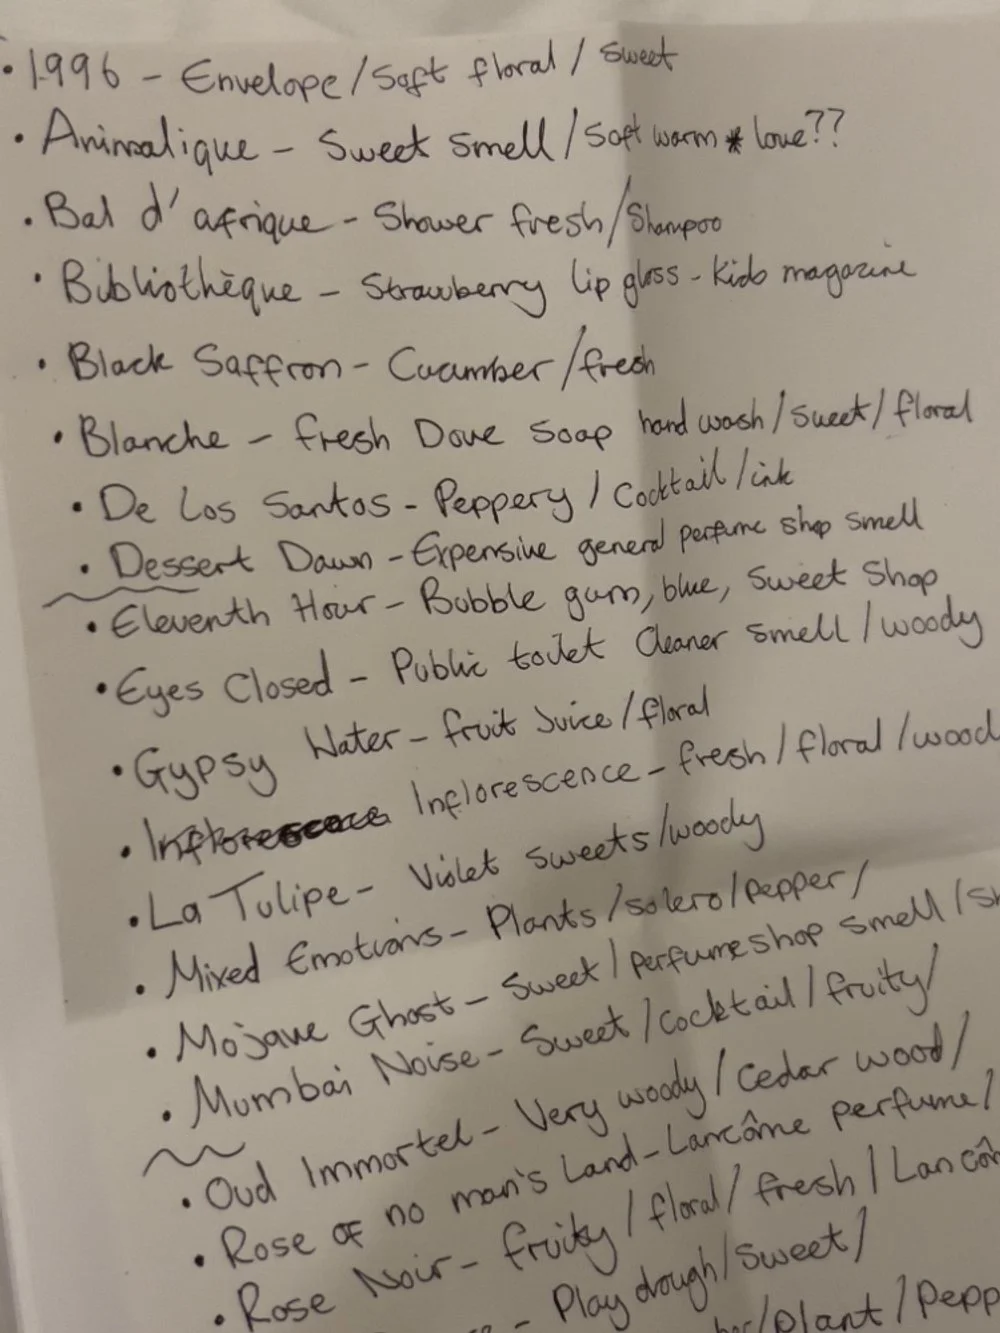 • 1996 - Envelope/Soft floral / Sweet
• Animalique - Sweet Smell/Soft warm * love??
• Bal d'afrique - Shower fresh/Shampoo
• Bibliothèque - Strawberry lip gloss - Kids magazine
• Black Saffron - Cucumber/fresh
• Blanche - fresh Dove Soap hand wash/Sweet/floral
• De Los Santos - Peppery / Cocktail/ink
• Dessert Dawn - Expensive general perfume shop smell
• Eleventh Hour - Bubble gum, blue, Sweet Shop
• Eyes Closed - Public toilet Cleaner smell/woody
• Gypsy Water - fruit Juice/floral
• Inflorescence - fresh/floral/wood
• La Tulipe - Violet Sweets/woody
• Mixed Emotions - Plants/solero/pepper/
• Mojave Ghost - Sweet/perfume shop smell/
• Mumbai Noise - Sweet/cocktail/fruity/
• Oud Immortel - Very woody/Cedar wood/
• Rose of no man's Land - Lancôme perfume/
• Rose Noir - fruity/floral/fresh/Lancôm
- Play dough/Sweet/
/Plant/Pepp